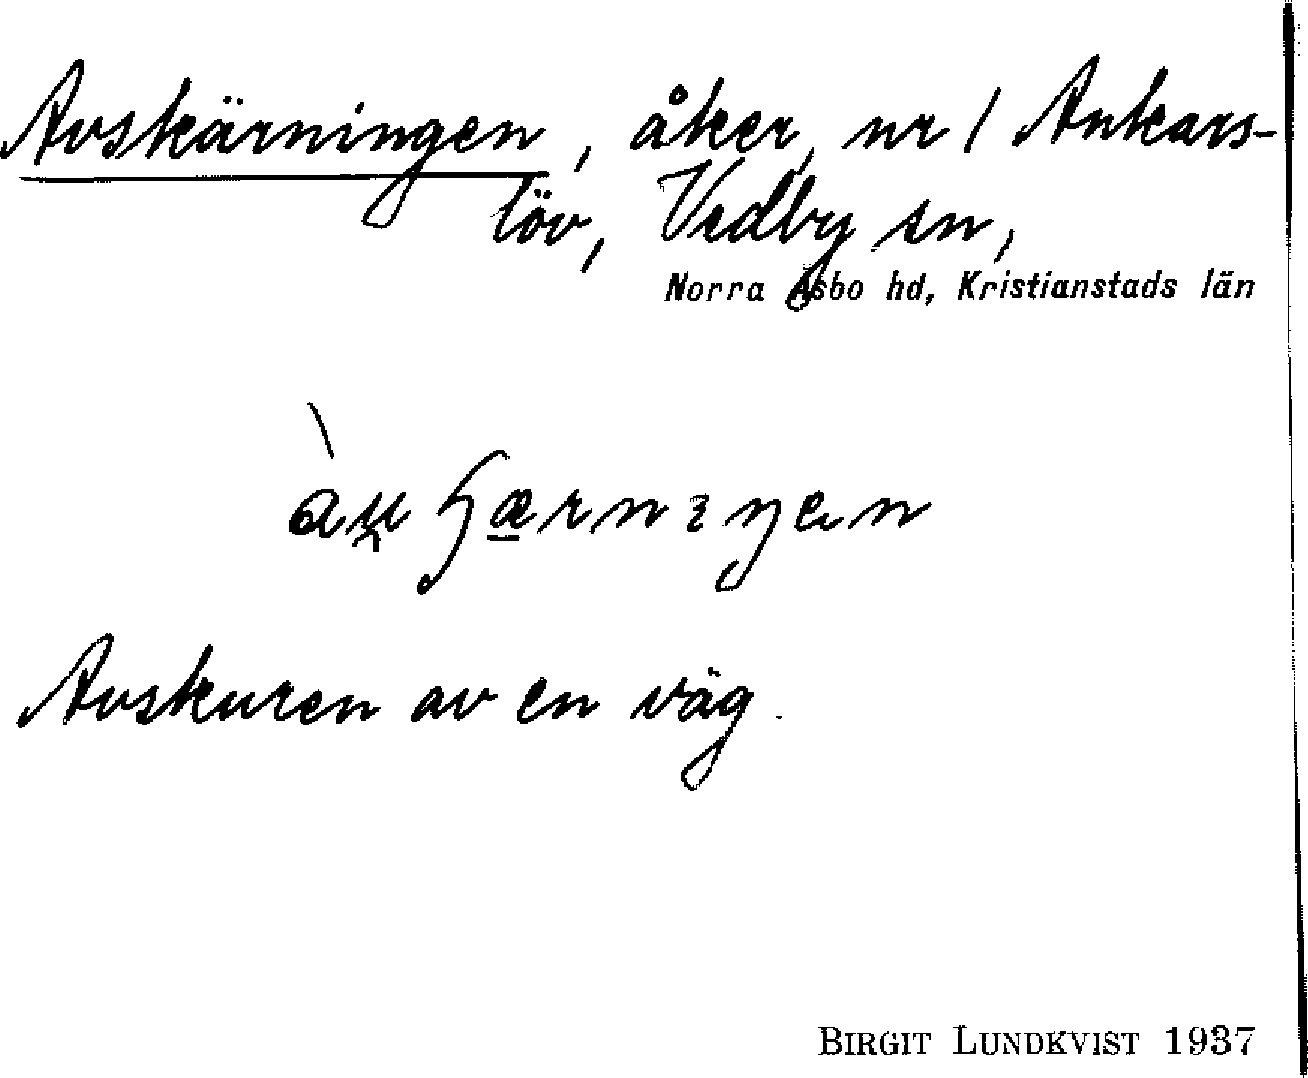 Avskärningen, åker, nr 1 Ankars-
löv, Vedby sn,
Norra Åsbo hd, Kristianstads län
Avskuren av en väg.
BIRGIT LUNDKVIST 1937